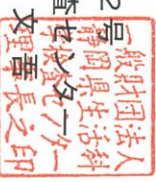 2号
査センター
文 善
一般財団法人
静岡県生活科
学検査センター
理事長之印